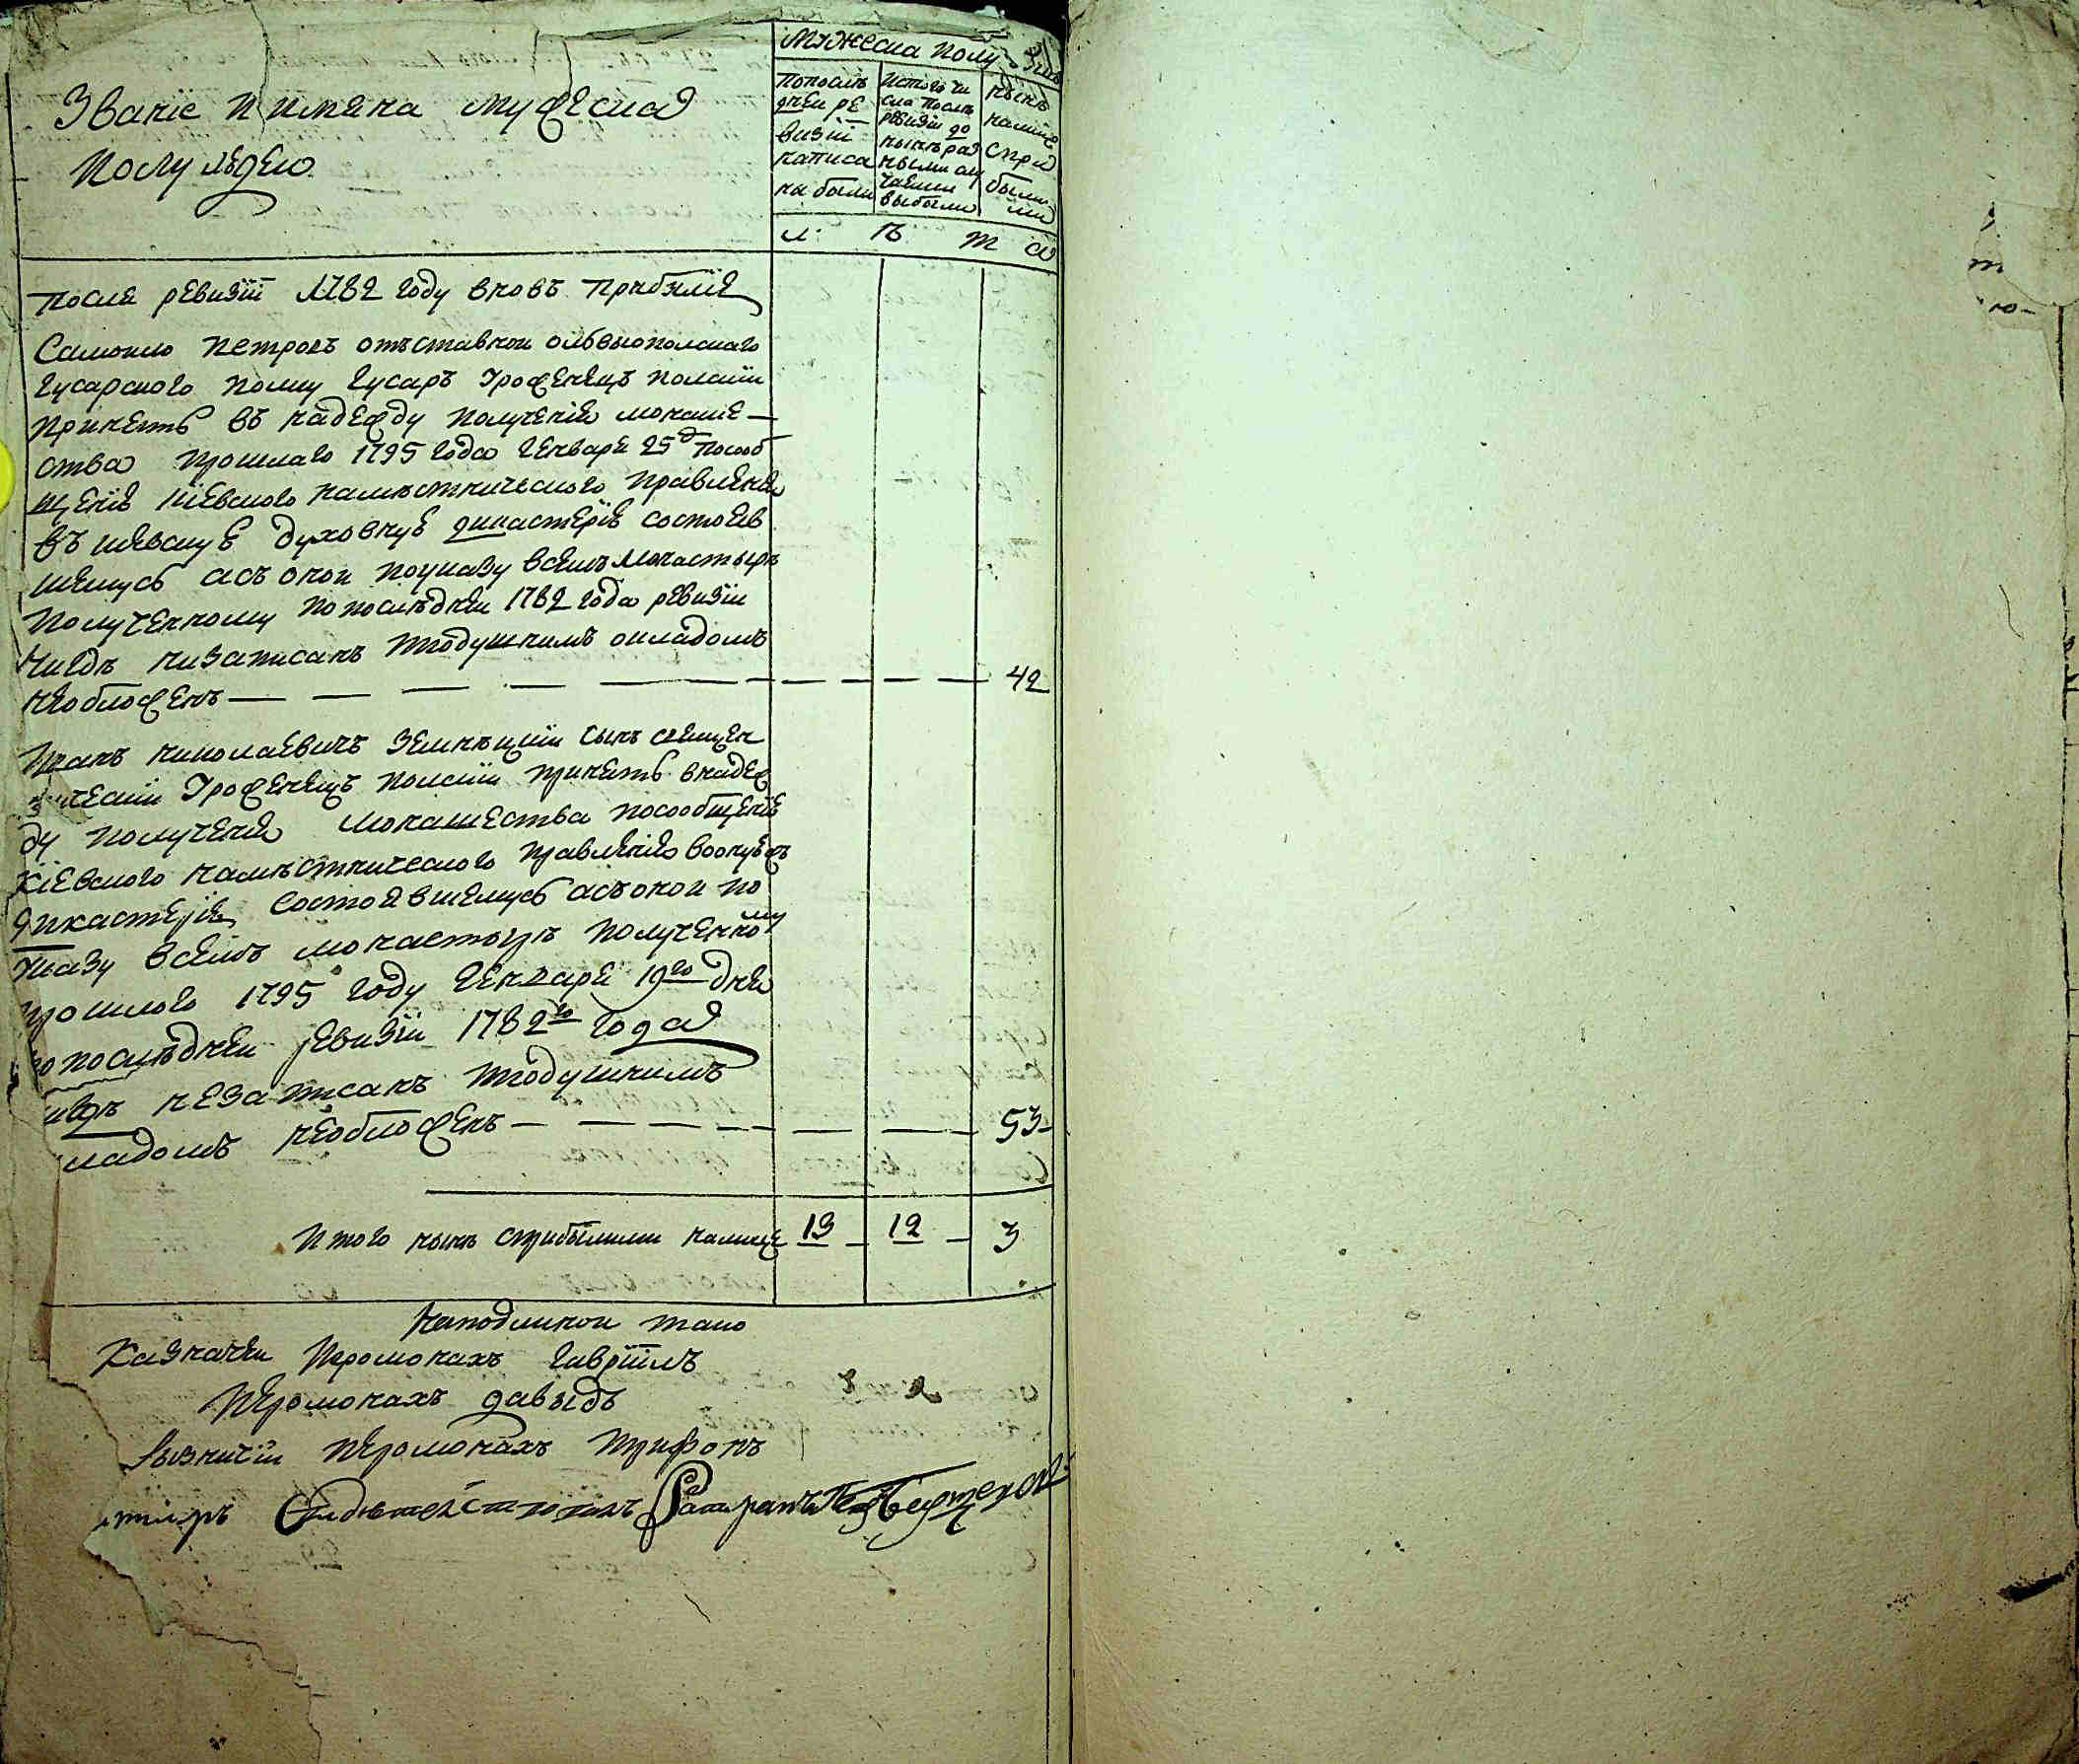 Званїе и имяна мужеска
полу людею
Мужеска полу
попослѣ
дней ре
визїи
написа
ны были
истого чи
сла послѣ
ревизїи до
нынѣ раз
ными слу
чаеми
выбыли
нынѣ
налицо
спри
былы
ми
л ѣ т а
после ревизїи 1782 году вновь прибылїе
Самоило Петровъ отъставной олвиопольскаго
гусарского полку гусаръ уроженецъ полскїи
принеть въ надежду полученїя монаше
ства прошлаго 1795 года генваря 25 д посооб
щенїе кїевского намѣстнического правленїя
въ кїевскуе духовнуе дикастерїе состояв
шемусь асъ оной поуказу всемъ монастырѣ
полученному попоследней 1782 года ревизїи
нигдѣ низаписанъ подушнимъ окладомъ
необложенъ 42
Иванъ николаевичъ сынъ священ
ническїи уроженецъ полскїи принеть внадеж
ду полученїя монашества посообщенїе
кїевского намѣстнического правленїя воонуе
дикастерїе состоявшемусь асъ оной по
указу всемъ монастырѣ полученному
прошлого 1795 году генваря 19го дня
попоследней ревизїи 1782го года
нигдѣ незаписанъ подушнимъ
окладомъ необложенъ 53
Итого нынѣ сприбылими налице 13 12 3
Наподлиной тако
Казначей Иеромонахъ Гаврїилъ
Иеромонахъ давыдъ
Ризничїи иеромонахъ трифонъ